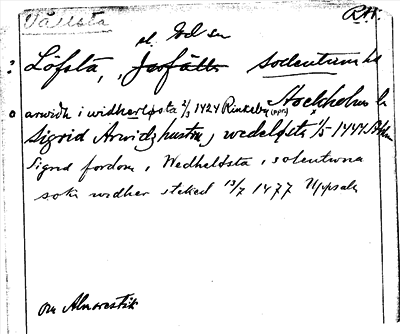 Vällsta R.A.
al. Ed sn
: Löfsta, , Jerfälla Sollentuna hd
Stockholms l.
o arwidh i widherløsta 2/3 1424 Rinkeby (uppr)
Sigrid Arwidz hustru, wedeløsta 1/5 1444 Sthlm
Sigrid fordom, Wedhelösta, solentuna
sokn widher steket 13/7 1477 Upsala
Om Almarestäk